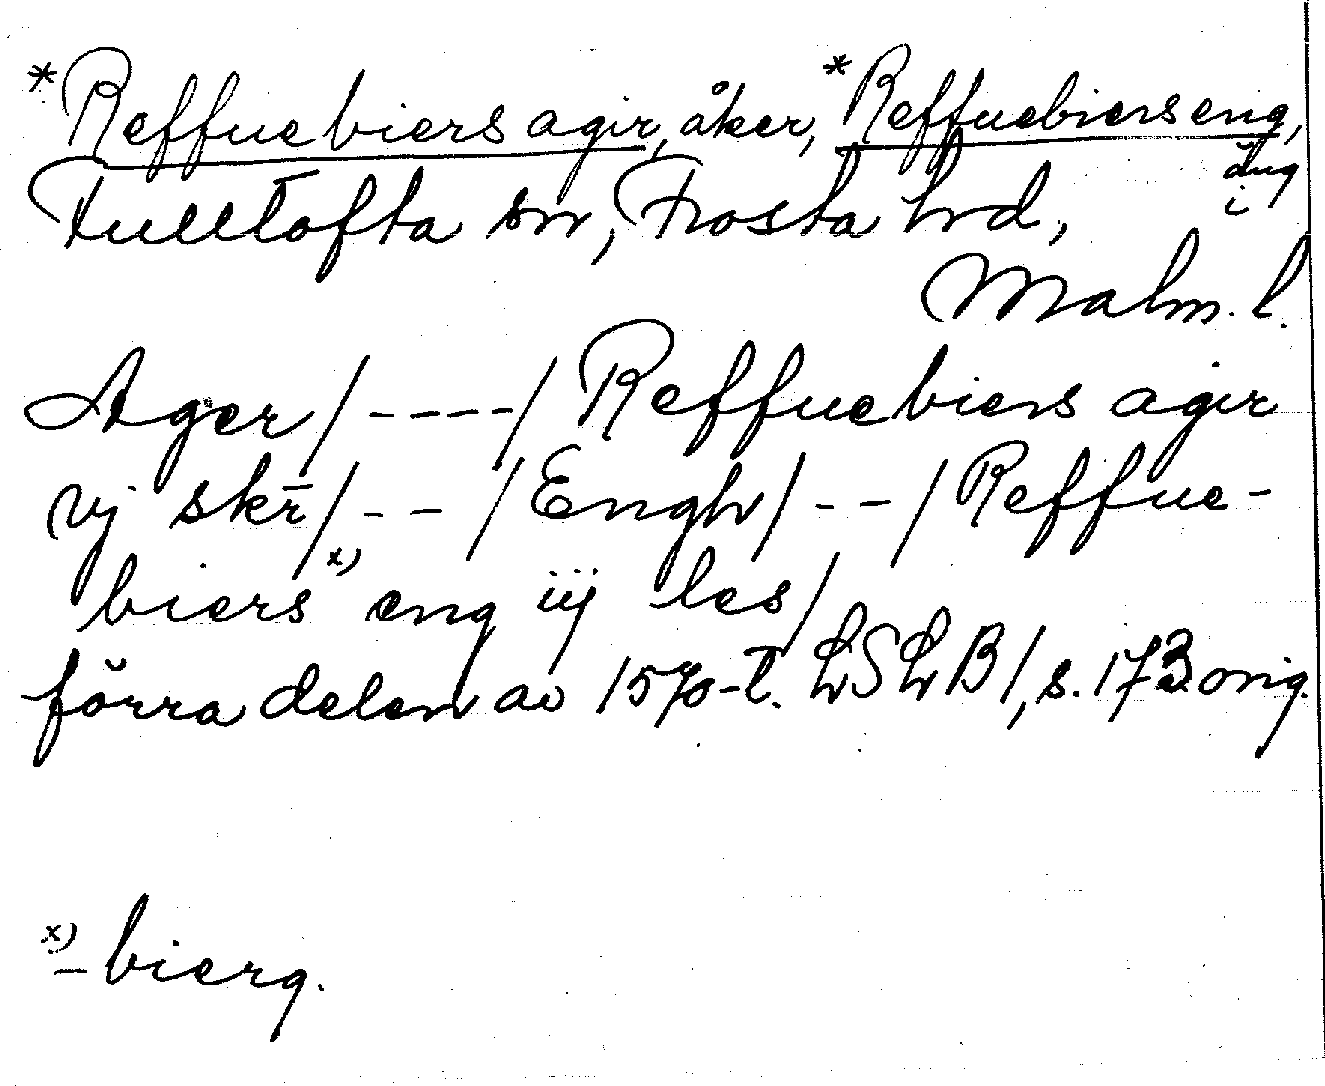 *Reffue biers agir, åker, *Reffuebiers eng, äng i
Fulltofta sn, Frosta hrd,
Malm. l.
Ager/----/ Reffue biers agir
vj skr̄/--/Engh/--/Reffue-
biers x) eng iij les/
förra delen av 1570-t. LSLB/, s. 173 orig.
x) -bierg.